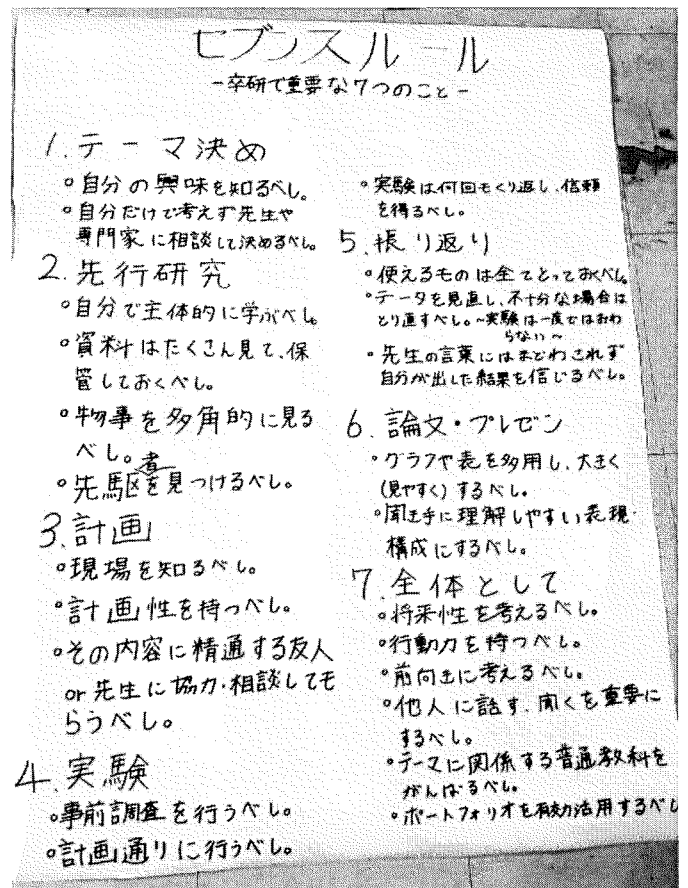 セブンスルール
-卒研で重要な7つのこと-
1.テーマ決め
・自分の興味を知るべし。
・自分だけで考えず先生や
専門家に相談して決めるべし。
2.先行研究
・自分で主体的に学ぶべし
・資料はたくさん見て、保
管しておくべし。
・物事を多角的に見る
べし。
・先駆者を見つけるべし。
3.計画
・現場を知るべし。
・計画性を持つべし。
・その内容に精通する友人
or先生に協力・相談しても
らうべし。
4.実験
・事前調査を行うべし。
・計画通りに行うべし。
・実験は何回もくり返し、信頼
を得るべし。
5.振り返り
・使えるものは全てとっておくべし。
・データを見直し、不十分な場合は
とり直すべし。~実験は一度ではおわ
らない~
・先生の言葉にはまどわされず
自分が出した結果を信じるべし。
6.論文・プレゼン
・グラフや表を多用し、大きく
(見やすく)するべし。
・聞き手に理解しやすい表現・
構成にするべし。
7.全体として
・将来性を考えるべし。
・行動力を持つべし。
・前向きに考えるべし。
・他人に話す、聞くを重要に
するべし。
・テーマに関係する普通教科を
がんばるべし。
・ポートフォリオを有効活用するべし